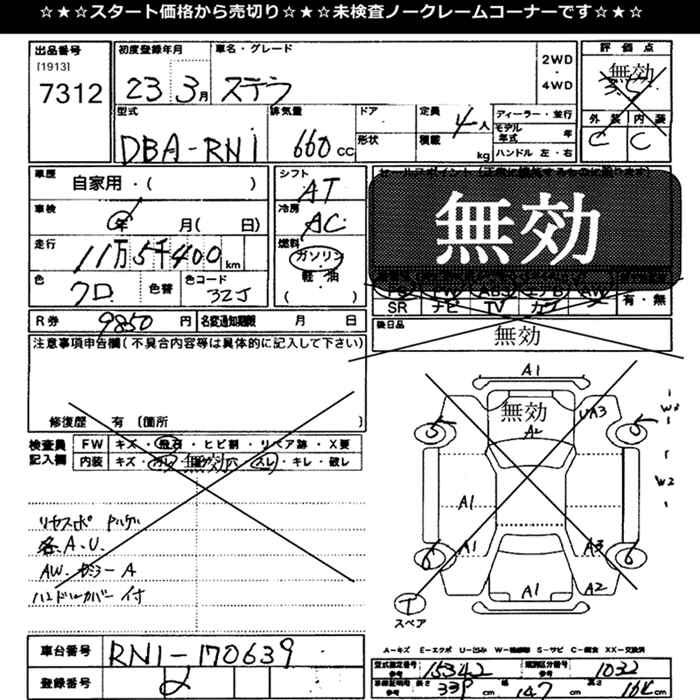 ☆★☆スタート価格から売切り☆★☆未検査ノークレームコーナーです☆★☆
出品番号
[1913]
7312
初度登録年月
23 3月
車名・グレード
ステラ
2WD
・
4WD
評価点
無効
3.5
外装 内装
C C
型式
DBA-RN1
排気量
660 CC
ドア
形状
定員
4人
積載
kg
ディーラー・並行
モデル年式 年
ハンドル 左・右
車歴
自家用・( )
車検
年 月( 日)
走行
11万5千400km
色
クロ
色替
色コード
32J
シフト
AT
冷房
AC
燃料
ガソリン
軽・油
( )
無効
PS PW ABS エアB AW
SR ナビ TV カワ
有・無
R券 9850円
名変通知期限 月 日
後日品
無効
注意事項申告欄(不具合内容等は具体的に記入して下さい)
修復歴 有〔箇所 〕
検査員
記入欄
FW キズ・飛石・ヒビ割・リペア跡・X要
内装 キズ・無効・スレ・キレ・破レ
各A.U.
AW.ガラミー A
ハンドルカバー付
A1
無効
A2
UA3
5 5
W2
A1
W2
A1 A3
6 6
A1
A2
T
スペア
A−キズ E−エクボ U−凹み W−補修跡 S−サビ C−腐食 XX−交換済
車台番号 RN1-170639
登録番号 2
型式指定番号
参考
15342
類別区分番号
参考
1032
長さ 339cm 幅 147cm 高さ 164cm